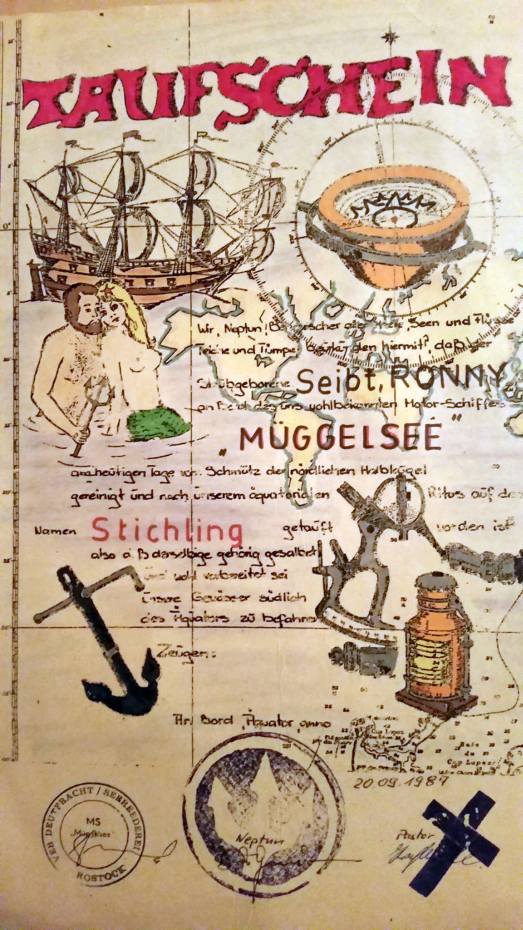 TAUFSCHEIN
Wir, Neptun, Beherrscher aller Meere Seen und Flüsse
Teiche und Tümpel den hiermit, daß der
Staubgeborene Seibt, RONNY
an Bord des uns wohlbekannten Motor-Schiffes
"MÜGGELSEE"
am heutigen Tage vom Schmutz der nördlichen Halbkugel
gereinigt und nach unserem äquatorialen Ritus auf den
Namen Stichling getauft worden ist
also daß derselbige gehörig gesalbet
und wohl vorbereitet sei
Unsere Gewässer südlich
des Äquators zu befahren
Zeugen:
An Bord, Äquator, anno
20.09.1987
VEB DEUTFRACHT / SEEREEDEREI
MS
"Müggelsee"
ROSTOCK
Neptun
Pastor